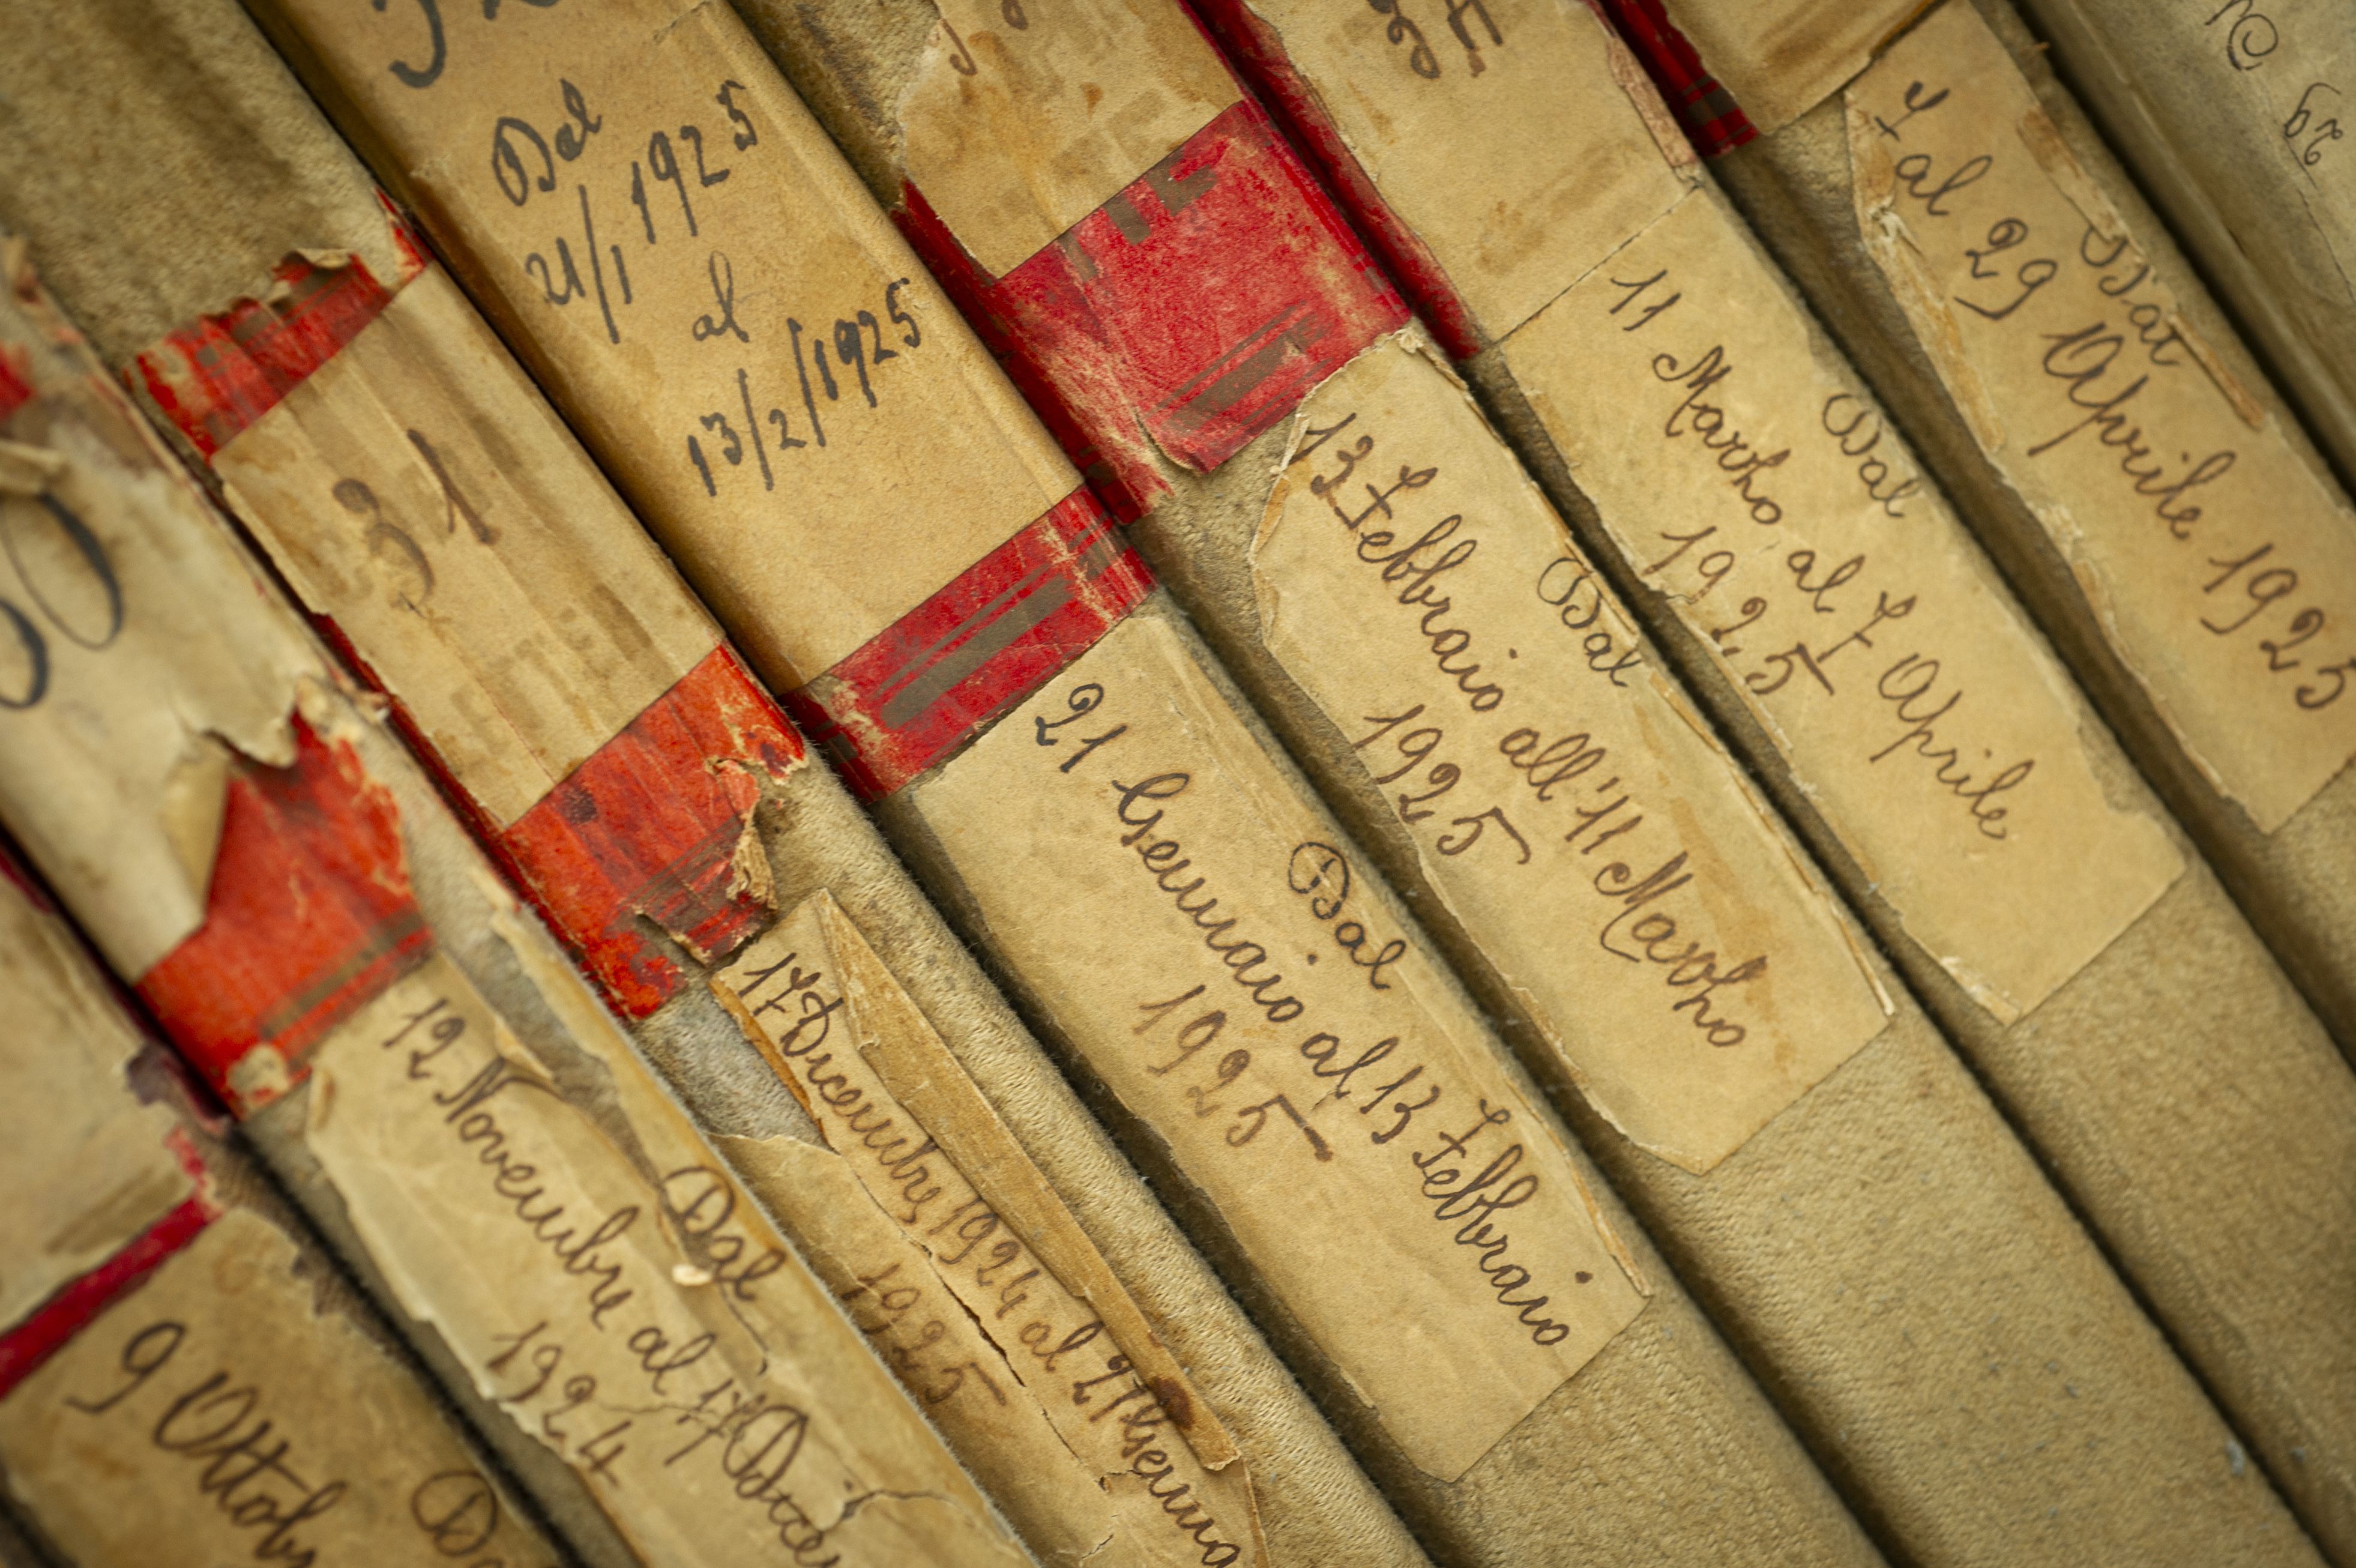 Dal
9 Ottob
30
Dal
12 Novembre al 17 Dice
1924
31
17 Dicembre 1924 al 21 Genna
1925
32
Dal
21/1 1925
al
13/2/1925
Dal
21 Gennaio al 13 Febbraio
1925
Dal
13 Febbraio all'11 Marzo
1925
Dal
11 Marzo al 7 Aprile
1925
Dal
7 al 29 Aprile 1925